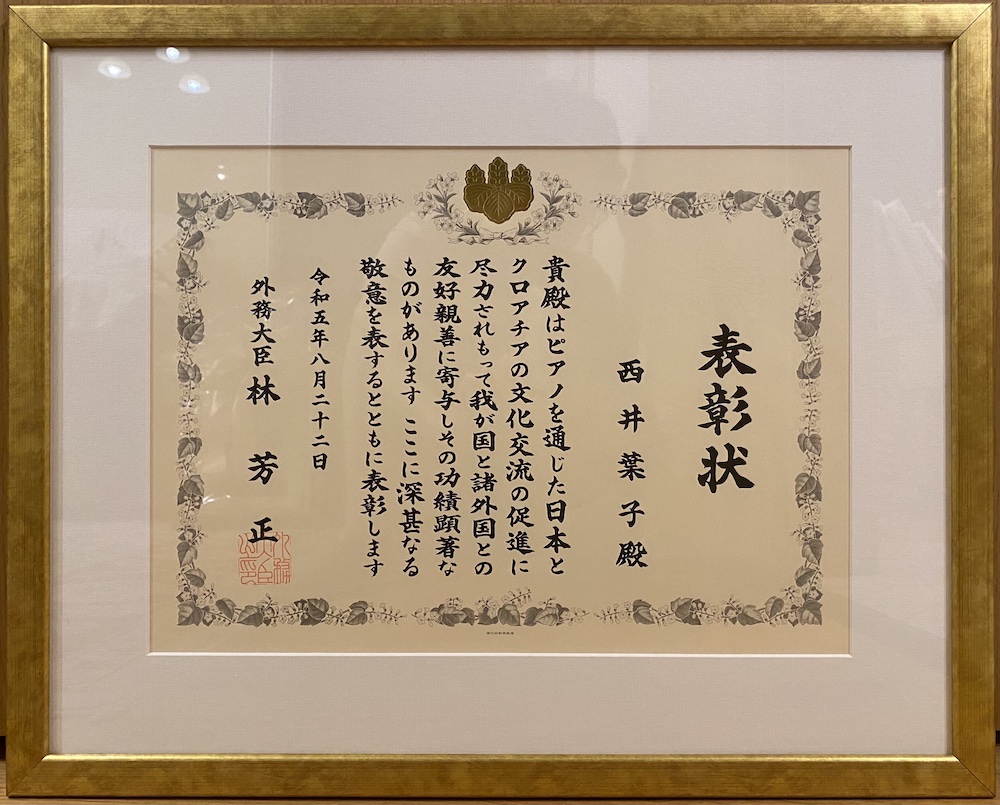 表彰状
西井葉子殿
貴殿はピアノを通じた日本と
クロアチアの文化交流の促進に
尽力されもって我が国と諸外国との
友好親善に寄与しその功績顕著な
ものがあります ここに深甚なる
敬意を表するとともに表彰します
令和五年八月二十二日
外務大臣 林芳正